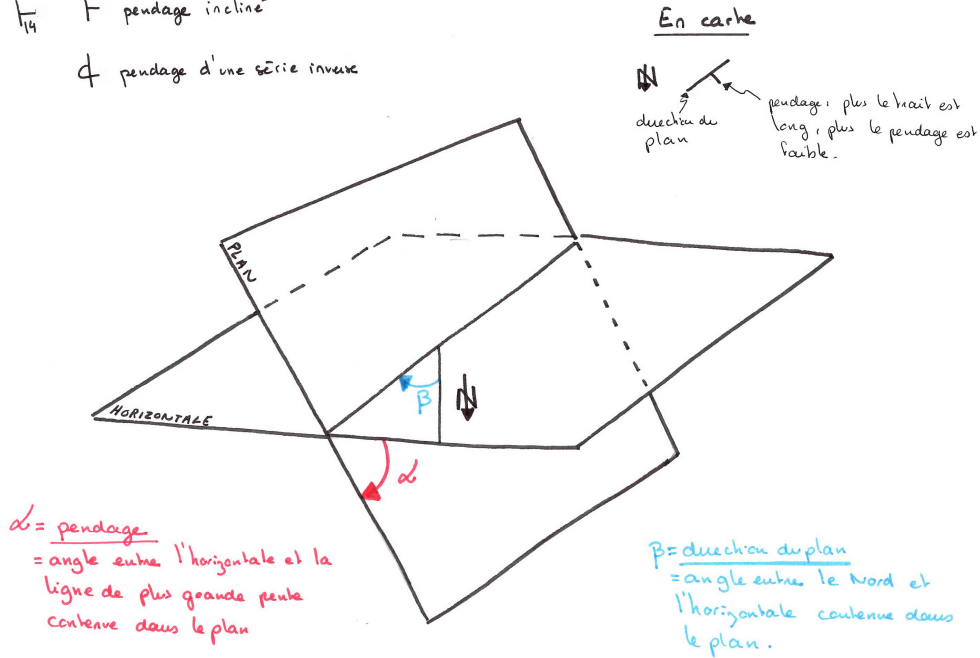 14
pendage incliné
pendage d'une série inverse
En carte
N
direction du
plan
pendage, plus le trait est
long, plus le pendage est
faible.
PLAN
HORIZONTALE
β
N
α
α = pendage
= angle entre l'horizontale et la
ligne de plus grande pente
contenue dans le plan
β = direction du plan
= angle entre le Nord et
l'horizontale contenue dans
le plan.